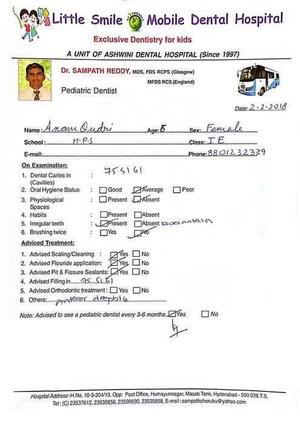 Little Smile Mobile Dental Hospital
Exclusive Dentistry for kids
A UNIT OF ASHWINI DENTAL HOSPITAL (Since 1997)
Dr. SAMPATH REDDY, MDS, FDS RCPS (Glasgow)
MFDS RCS (England)
Pediatric Dentist
Date: 2-2-2018
Name: Anam Age: Sex: Female
School: H.P.S Class: I E
E-mail: Phone: 8801232339
On Examination:
1. Dental Caries in (Cavities) : 75 51 61
2. Oral Hygiene Status : Good Average Poor
3. Physiological Spaces : Present Absent
4. Habits : Present Absent
5. Irregular teeth : Present Absent
6. Brushing twice : Yes No
Adviced Treatment:
1. Advised Scaling/Cleaning : Yes No
2. Advised Flouride application: Yes No
3. Advised Pit & Fissure Sealants: Yes No
4. Advised Filling in 75 51 61
5. Advised Orthodontic treatment : Yes No
6. Others:
Note: Advised to see a pediatric dentist every 3-6 months Yes No
Hospital Address: H.No. 10-3-304/13, Opp: Post Office, Humayunnagar, Masab Tank, Hyderabad - 500 028 T.S.
Tel: (C) 23537612, 23535656, 23590690, 23535858, E-mail : sampathcheruku@yahoo.com